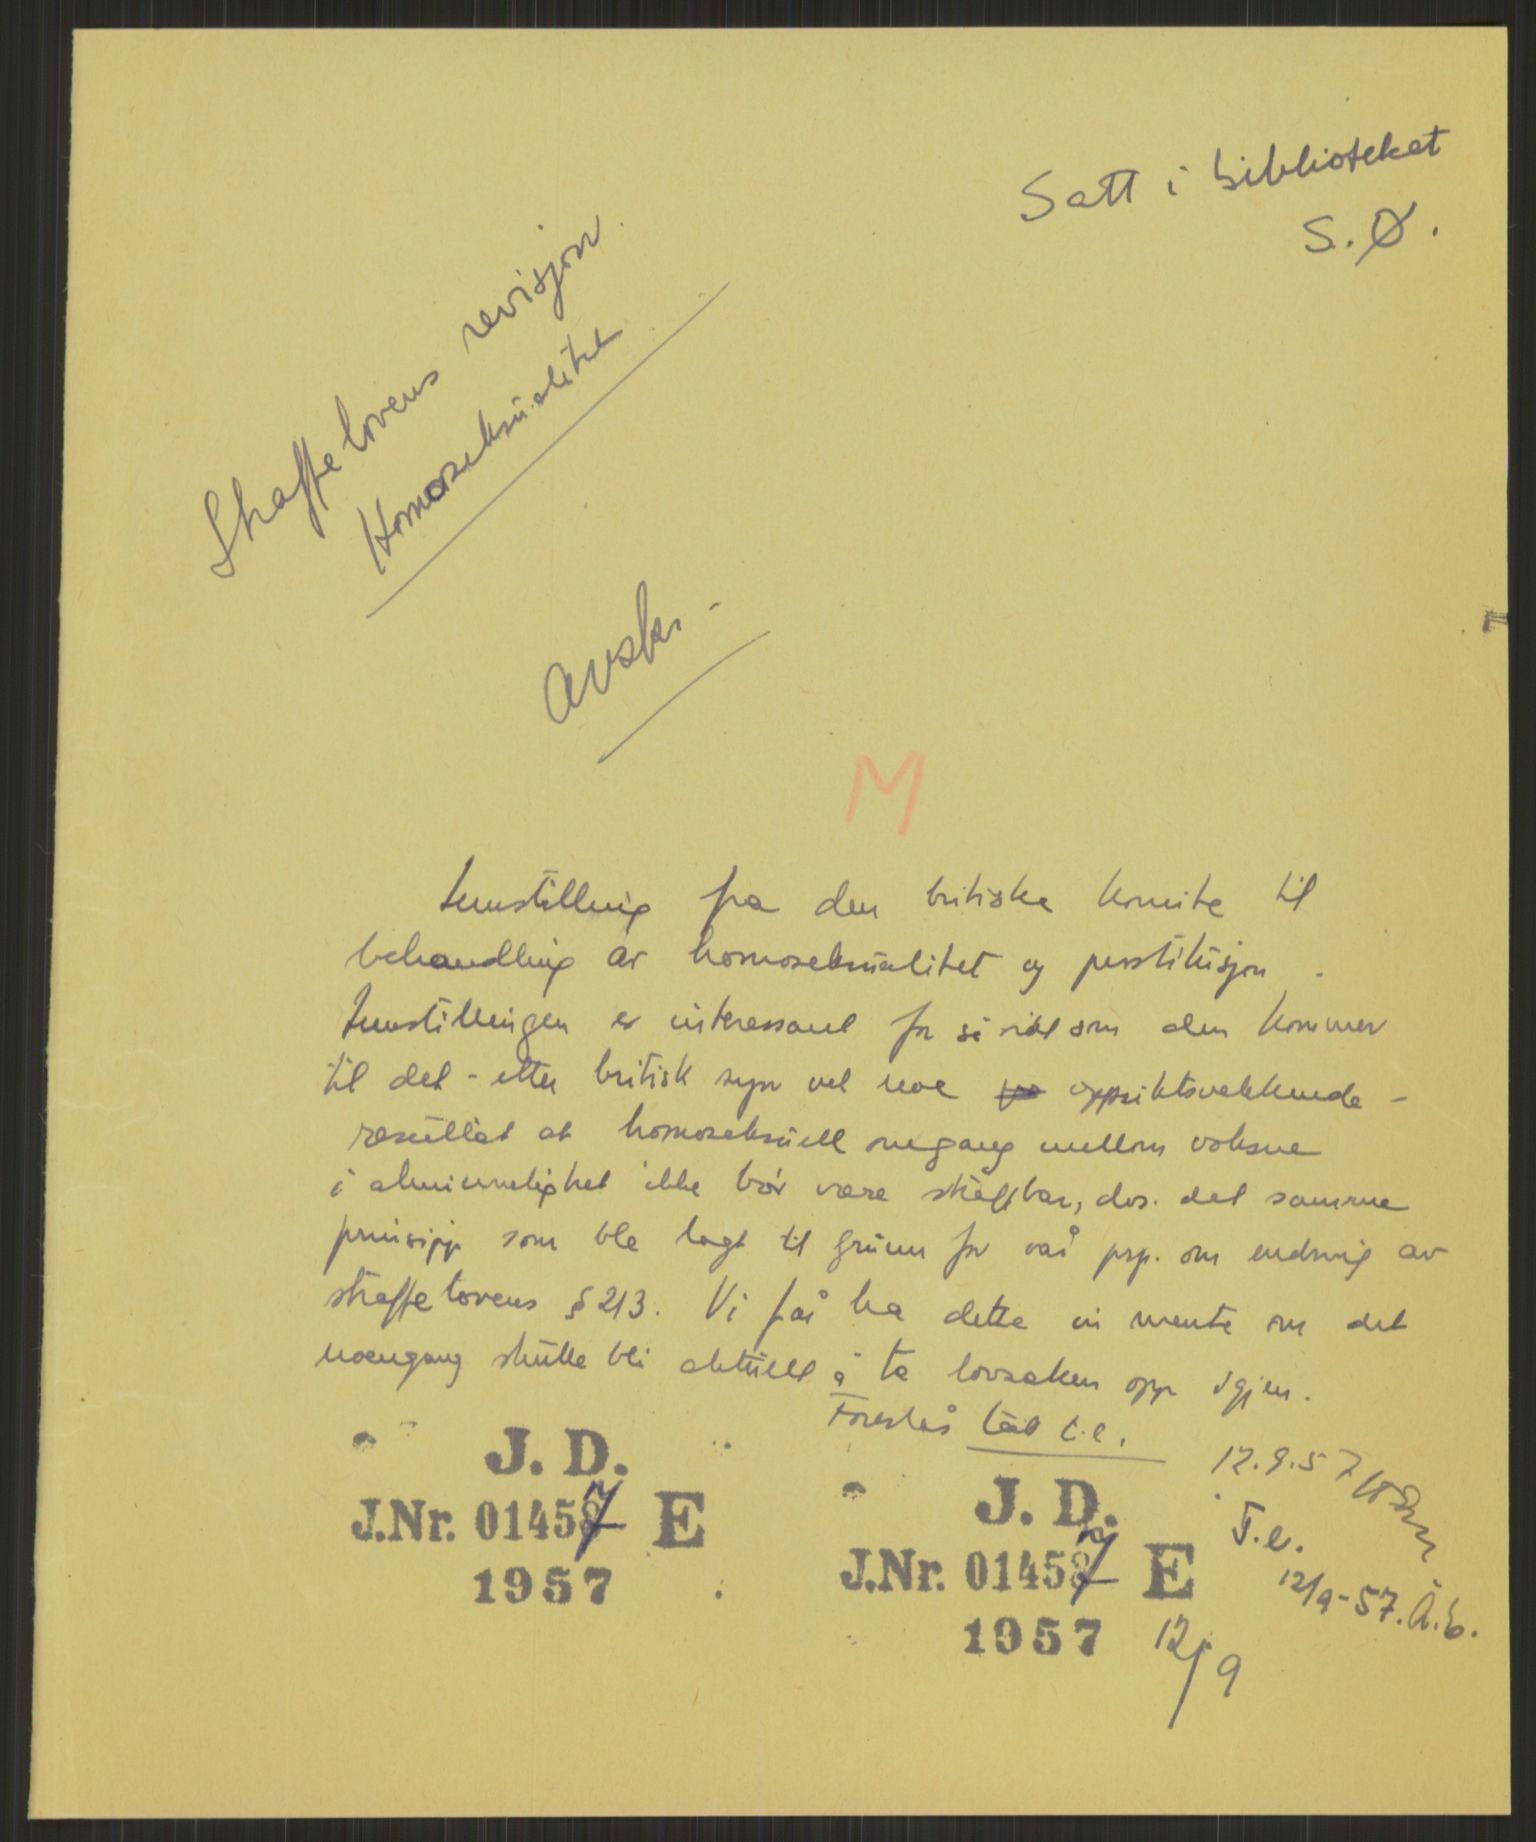 Satt i biblioteket
S.Ø.
Straffelovens revisjon
Homoseksualitet
Avskr.
M
Innstilling fra den britiske komite til
behandling av homoseksualitet og prostitusjon.
Innstillingen er interessant for så vidt som den kommer
til det - etter britisk syn vel noe oppsiktsvekkende -
resultat at homoseksuell omgang mellom voksne
i alminnelighet ikke bør være straffbar, dvs. det samme
prinsipp som ble lagt til grunn for vår prp. om endring av
straffelovens § 213. Vi får ha dette in mente om det
noengang skulle bli aktuelt å ta lovsaken opp igjen.
Foreslås
12.9.57
J. D.
J.Nr. 01457 E
1957
J. D.
J.Nr. 01457 E
1957
12/9
T.e.
12/9-57. Å.E.